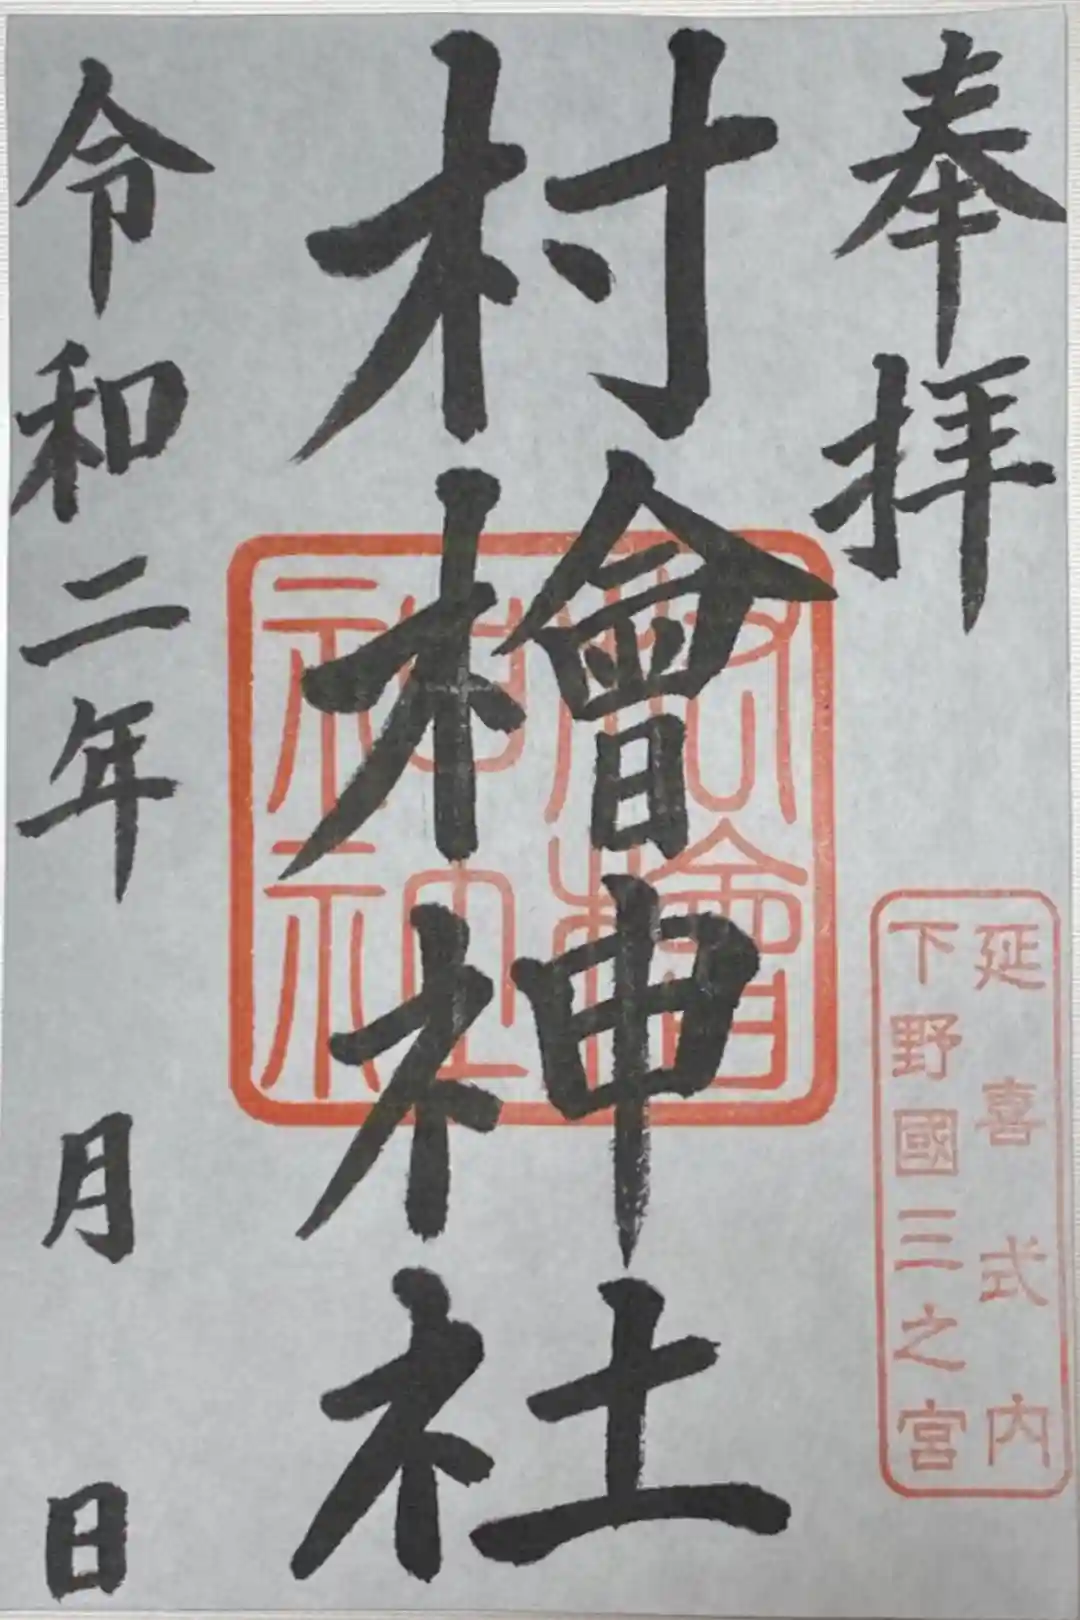 奉拝
延喜式内
下野國三之宮
村檜神社
村檜神社
令和二年 月 日